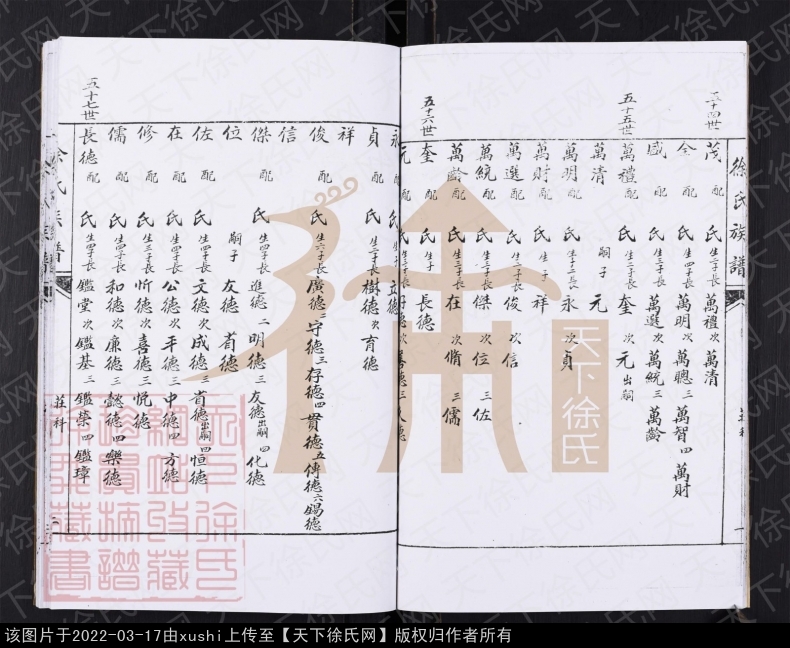 徐氏族譜
五十四世
茂 配 氏 生二子長 萬禮 次 萬清
全 配 氏 生四子長 萬明 二 萬聰 三 萬智 四 萬財
盛 配 氏 生三子長 萬選 次 萬統 三 萬齡
五十五世
萬禮 配 氏 生二子長 奎 次 元 出嗣
萬清 嗣子 元
萬明 配 氏 生子二長 永 次 貞
萬財 配 氏 生子 祥
萬選 配 氏 生二子長 俊 次 信
萬統 配 氏 生三子長 傑 次 位 三 佐
萬齡 配 氏 生三子長 在 次 脩 三 儒
五十六世
奎 配 氏 生子 長德
元 配 氏
永 配 氏
貞 配 氏 生二子長 樹德 次 育德
祥
俊 配 氏 生六子長 廣德 二 守德 三 存德 四 貫德 五 傳德 六 錫德
信
傑 配 氏 生四子長 進德 二 明德 三 友德 出嗣 四 化德
位 嗣子 友德 首德
佐 配 氏 生四子長 文德 次 成德 三 首德 出嗣 四 恒德
在 配 氏 生四子長 公德 次 平德 三 中德 四 方德
修 配 氏 生三子長 忻德 次 喜德 三 悦德
儒 配 氏 生四子長 和德 次 廉德 三 懿德 四 樂德
五十七世
長德 配 氏 生四子長 鑑堂 次 鑑基 三 鑑榮 四 鑑璋
莊科
徐氏族譜
天下徐氏
天下徐氏网
该图片于2022-03-17由xushi上传至【天下徐氏网】版权归作者所有